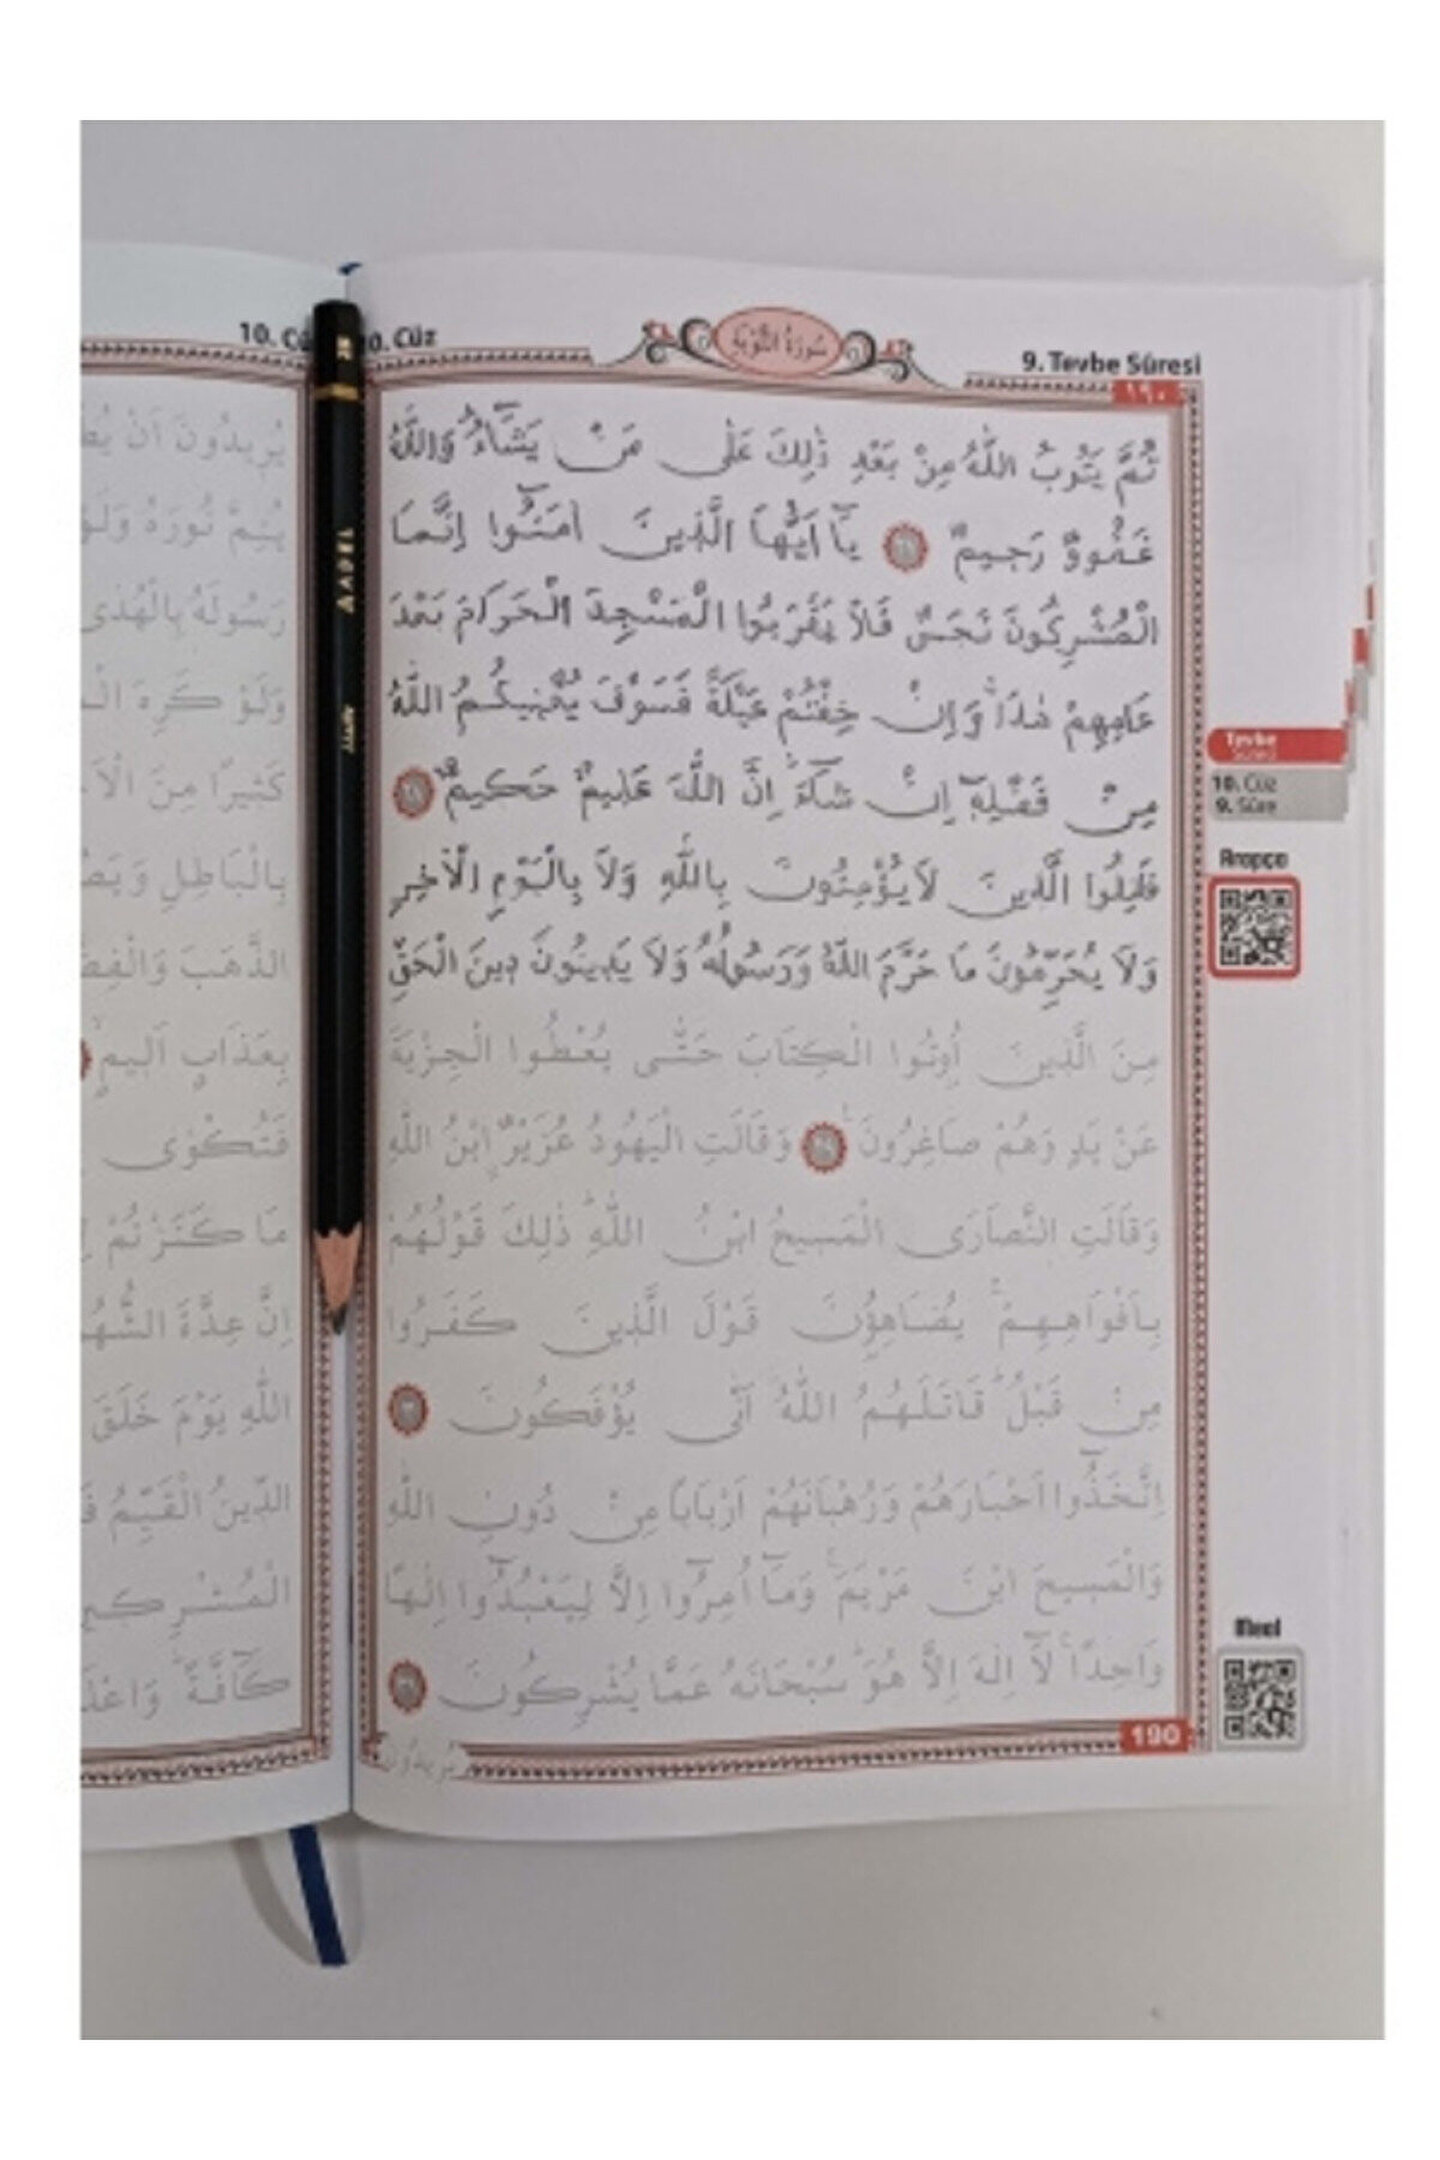 10. Cüz
9. Tevbe Sûresi
سُورَةُ التَّوْبَةِ
١٩٠
ثُمَّ يَتُوبُ اللّٰهُ مِنْ بَعْدِ ذٰلِكَ عَلٰى مَنْ يَشَٓاءُ وَاللّٰهُ
غَفُورٌ رَحِيمٌ يَٓا اَيُّهَا الَّذِينَ اٰمَنُٓوا اِنَّمَا
الْمُشْرِكُونَ نَجَسٌ فَلَا يَقْرَبُوا الْمَسْجِدَ الْحَرَامَ بَعْدَ
عَامِهِمْ هٰذَا وَاِنْ خِفْتُمْ عَيْلَةً فَسَوْفَ يُغْنِيكُمُ اللّٰهُ
مِنْ فَضْلِه۪ٓ اِنْ شَٓاءَ اِنَّ اللّٰهَ عَلِيمٌ حَكِيمٌ
قَاتِلُوا الَّذِينَ لَا يُؤْمِنُونَ بِاللّٰهِ وَلَا بِالْيَوْمِ الْاٰخِرِ
وَلَا يُحَرِّمُونَ مَا حَرَّمَ اللّٰهُ وَرَسُولُهُ وَلَا يَدِينُونَ دِينَ الْحَقِّ
مِنَ الَّذِينَ اُوتُوا الْكِتَابَ حَتّٰى يُعْطُوا الْجِزْيَةَ
عَنْ يَدٍ وَهُمْ صَاغِرُونَ وَقَالَتِ الْيَهُودُ عُزَيْرٌ ابْنُ اللّٰهِ
وَقَالَتِ النَّصَارَى الْمَسِيحُ ابْنُ اللّٰهِ ذٰلِكَ قَوْلُهُمْ
بِاَفْوَاهِهِمْ يُضَاهِؤُنَ قَوْلَ الَّذِينَ كَفَرُوا
مِنْ قَبْلُ قَاتَلَهُمُ اللّٰهُ اَنّٰى يُؤْفَكُونَ
اِتَّخَذُٓوا اَحْبَارَهُمْ وَرُهْبَانَهُمْ اَرْبَابًا مِنْ دُونِ اللّٰهِ
وَالْمَسِيحَ ابْنَ مَرْيَمَ وَمَٓا اُمِرُٓوا اِلَّا لِيَعْبُدُٓوا اِلٰهًا
وَاحِدًا لَٓا اِلٰهَ اِلَّا هُوَ سُبْحَانَهُ عَمَّا يُشْرِكُونَ
يُرِيدُونَ
190
Tevbe
10. Cüz
9. Sûre
Arapça
Meal
10. Cüz
يُرِيدُونَ اَنْ
يُتِمَّ نُورَهُ وَلَوْ
رَسُولَهُ بِالْهُدٰى
وَلَوْ كَرِهَ
كَثِيرًا مِنَ
بِالْبَاطِلِ
الذَّهَبَ
بِعَذَابٍ اَلِيمٍ
فَتُكْوٰى
مَا كَنَزْتُمْ
اِنَّ عِدَّةَ
اللّٰهِ يَوْمَ خَلَقَ
الدِّينُ الْقَيِّمُ
كَٓافَّةً
ADEL